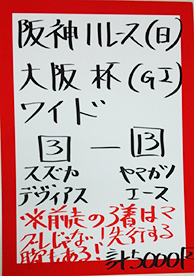 阪神11レース(日)
大阪杯(GI)
ワイド
3 — 13
スズカ ヤマカツ
デヴィアス エース
※前走の3着はマ
グレじゃない!先行する
脚もある! 計5000円